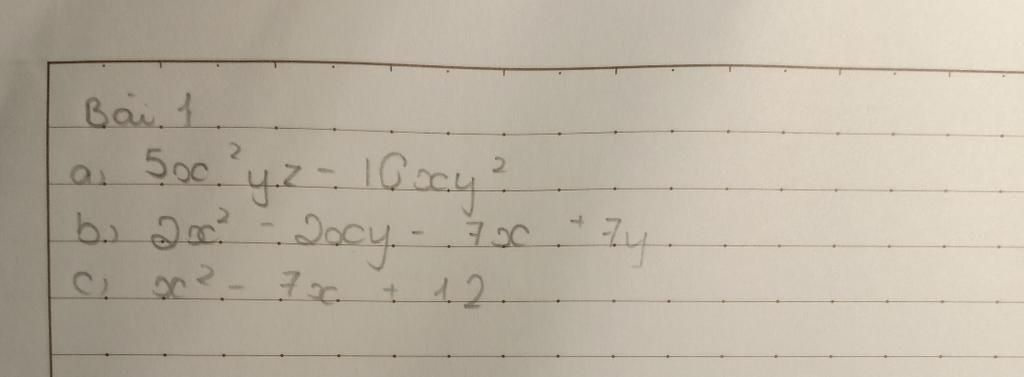 Bài 1
a, 5x²yz - 10xy²
b, 2x² - 2xy - 7x + 7y
c, x² - 7x + 12